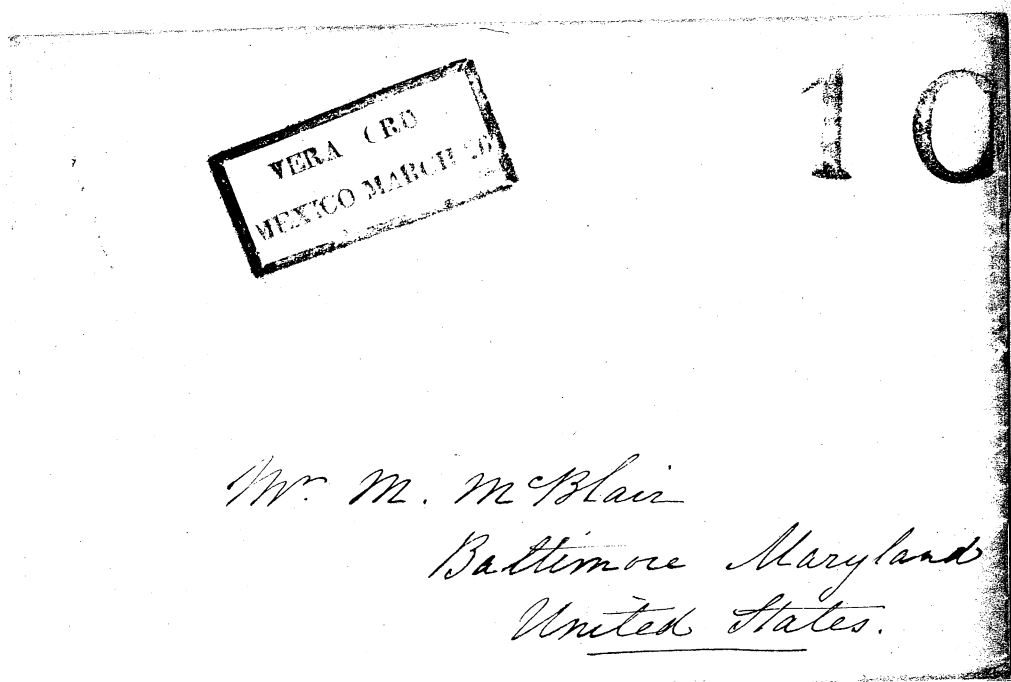 VERA CRO
MEXICO MARCH
10
Mr. M. McBlair
Baltimore Maryland
United States.